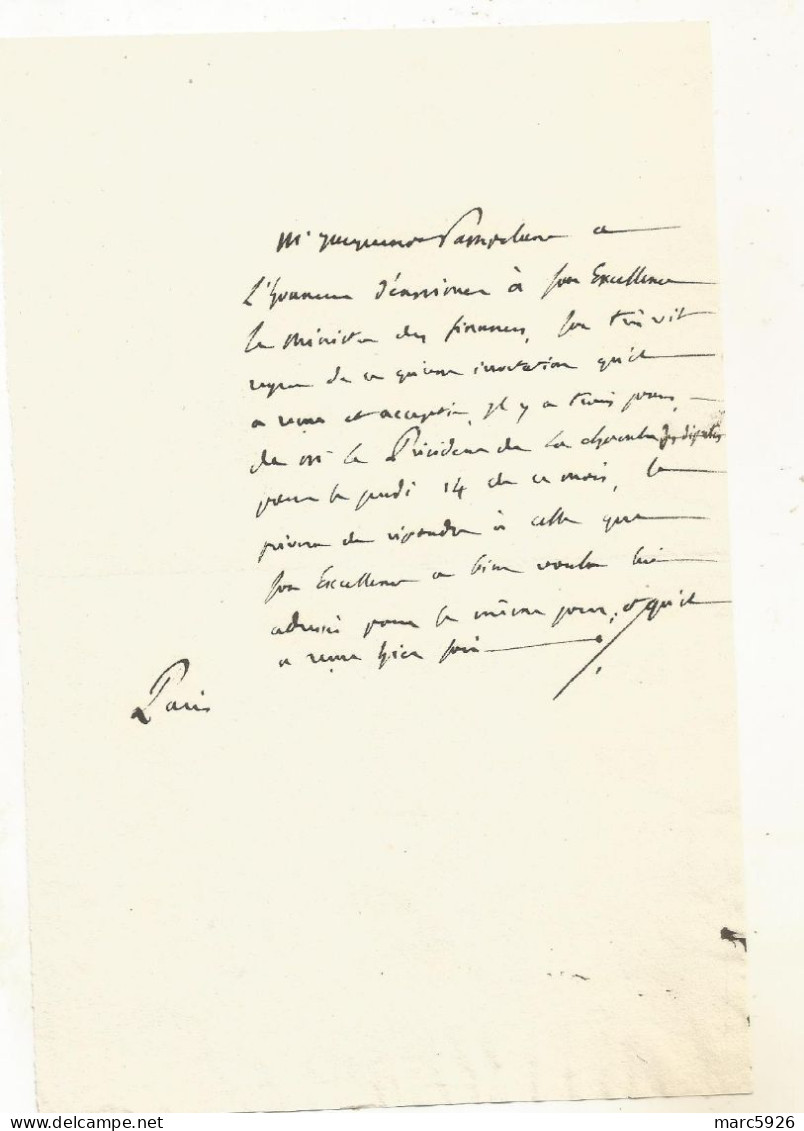 Mr Jacquinot Pampelune a
l'honneur d'exprimer à son Excellence
le Ministre des finances, son très vif
regret de ce qu'une invitation qu'il
a reçue et acceptée, il y a trois jours,
de Mr le Président de la chambre des députés
pour le jeudi 14 de ce mois, le
prive de répondre à celle que
son Excellence a bien voulu lui
adresser pour le même jour, et qu'il
a reçue hier soir
Paris
marc5926